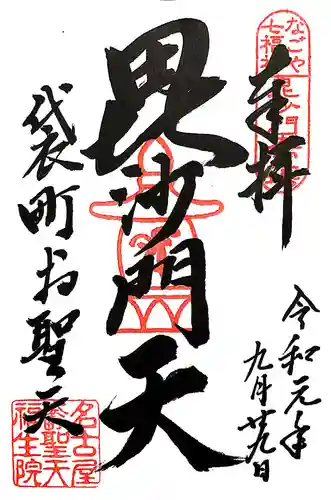 奉拝
なごや
七福神
毘沙門天
毘沙門天
令和元年
九月廿九日
袋町お聖天
名古屋
聖天
福生院